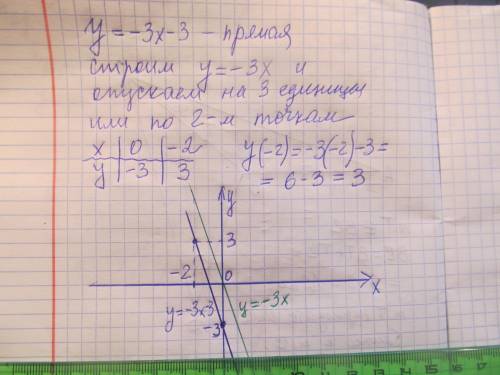 y = -3x-3 - прямая
строим y = -3x и
опускаем на 3 единицы
или по 2-м точкам
x | 0 | -2
y | -3 | 3
y(-2) = -3(-2)-3 =
= 6-3 = 3
y
3
-2
0
x
y=-3x-3
y=-3x
-3
10
11
12
13
14
15
16
17